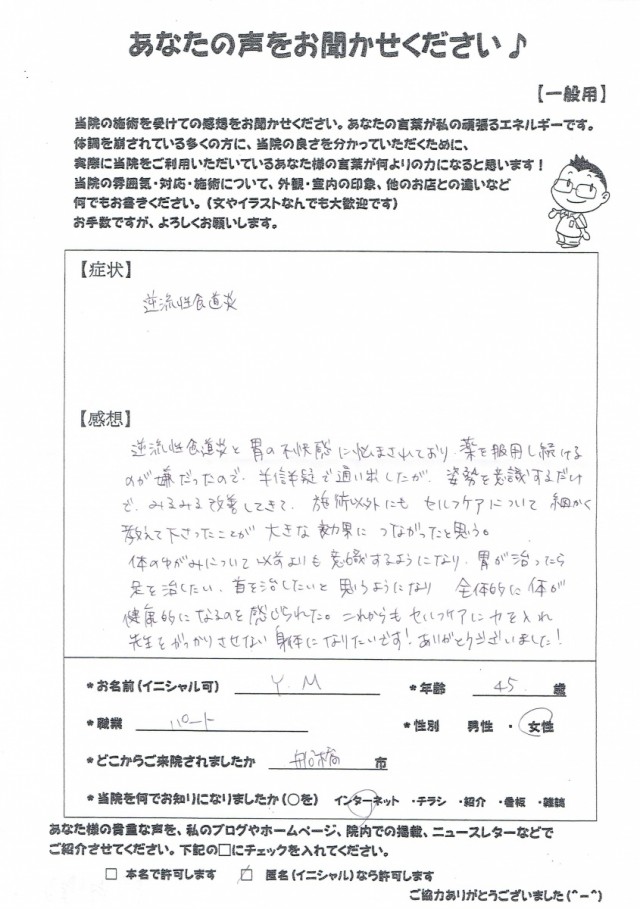 あなたの声をお聞かせください♪
【一般用】
当院の施術を受けての感想をお聞かせください。あなたの言葉が私の頑張るエネルギーです。
体調を崩されている多くの方に、当院の良さを分かっていただくために、
実際に当院をご利用いただいているあなた様の言葉が何よりの力になると思います！
当院の雰囲気・対応・施術について、外観・室内の印象、他のお店との違いなど
何でもお書きください。（文やイラストなんでも大歓迎です）
お手数ですが、よろしくお願いします。
【症状】
逆流性食道炎
【感想】
逆流性食道炎と胃の不快感に悩まされており、薬を服用し続ける
のが嫌だったので、半信半疑で通い出したが、姿勢を意識するだけ
で、みるみる改善してきて、施術以外にもセルフケアについて細かく
教えて下さったことが大きな効果につながったと思う。
体のゆがみについて以前よりも意識するようになり、胃が治ったら
足を治したい、首を治したいと思うようになり 全体的に体が
健康的になるのを感じられた。これからもセルフケアに力を入れ
先生をがっかりさせない身体になりたいです！ありがとうございました！
*お名前（イニシャル可） Y.M *年齢 45 歳
*職業 パート *性別 男性・女性
*どこからご来院されましたか 船橋 市
*当院を何でお知りになりましたか（○を） インターネット ・チラシ ・紹介 ・看板 ・雑誌
あなた様の貴重な声を、私のブログやホームページ、院内での掲載、ニュースレターなどで
ご紹介させてください。下記の□にチェックを入れてください。
□ 本名で許可します ☑ 匿名（イニシャル）なら許可します
ご協力ありがとうございました（^－^）